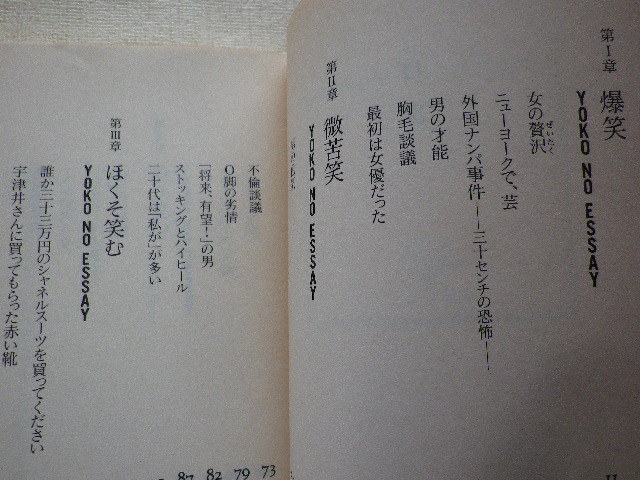 第Ⅰ章 爆笑
YOKO NO ESSAY
女の贅沢
ぜいたく
ニューヨークで、芸
外国ナンパ事件——三十センチの恐怖——
男の才能
胸毛談議
最初は女優だった
第Ⅱ章 微苦笑
YOKO NO ESSAY
不倫談議
O脚の劣情
「将来、有望!」の男
ストッキングとハイヒール
二十代は「私が」が多い
73
79
82
87
第Ⅲ章 ほくそ笑む
YOKO NO ESSAY
誰か三十三万円のシャネルスーツを買ってください
宇津井さんに買ってもらった赤い靴